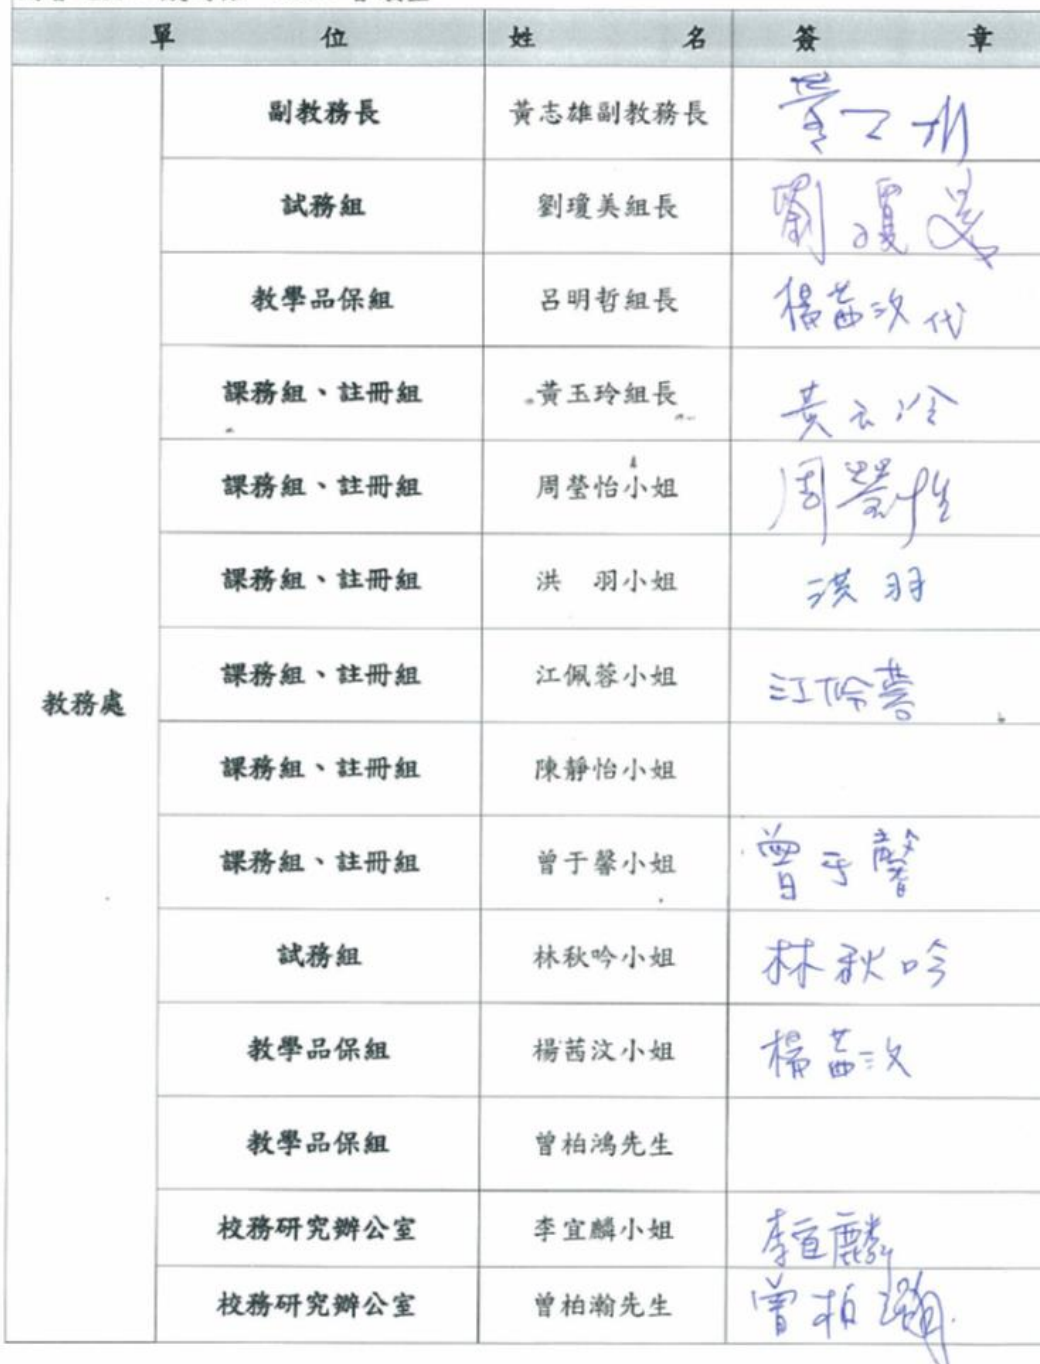 單 位 姓 名 簽 章
教務處
副教務長 黃志雄副教務長
試務組 劉瓊美組長 劉瓊美
教學品保組 呂明哲組長 楊茜汶代
課務組、註冊組 黃玉玲組長 黃玉玲
課務組、註冊組 周瑩怡小姐 周瑩怡
課務組、註冊組 洪 羽小姐 洪羽
課務組、註冊組 江佩蓉小姐 江佩蓉
課務組、註冊組 陳靜怡小姐
課務組、註冊組 曾于馨小姐 曾于馨
試務組 林秋吟小姐 林秋吟
教學品保組 楊茜汶小姐 楊茜汶
教學品保組 曾柏鴻先生
校務研究辦公室 李宜麟小姐 李宜麟
校務研究辦公室 曾柏瀚先生 曾柏瀚